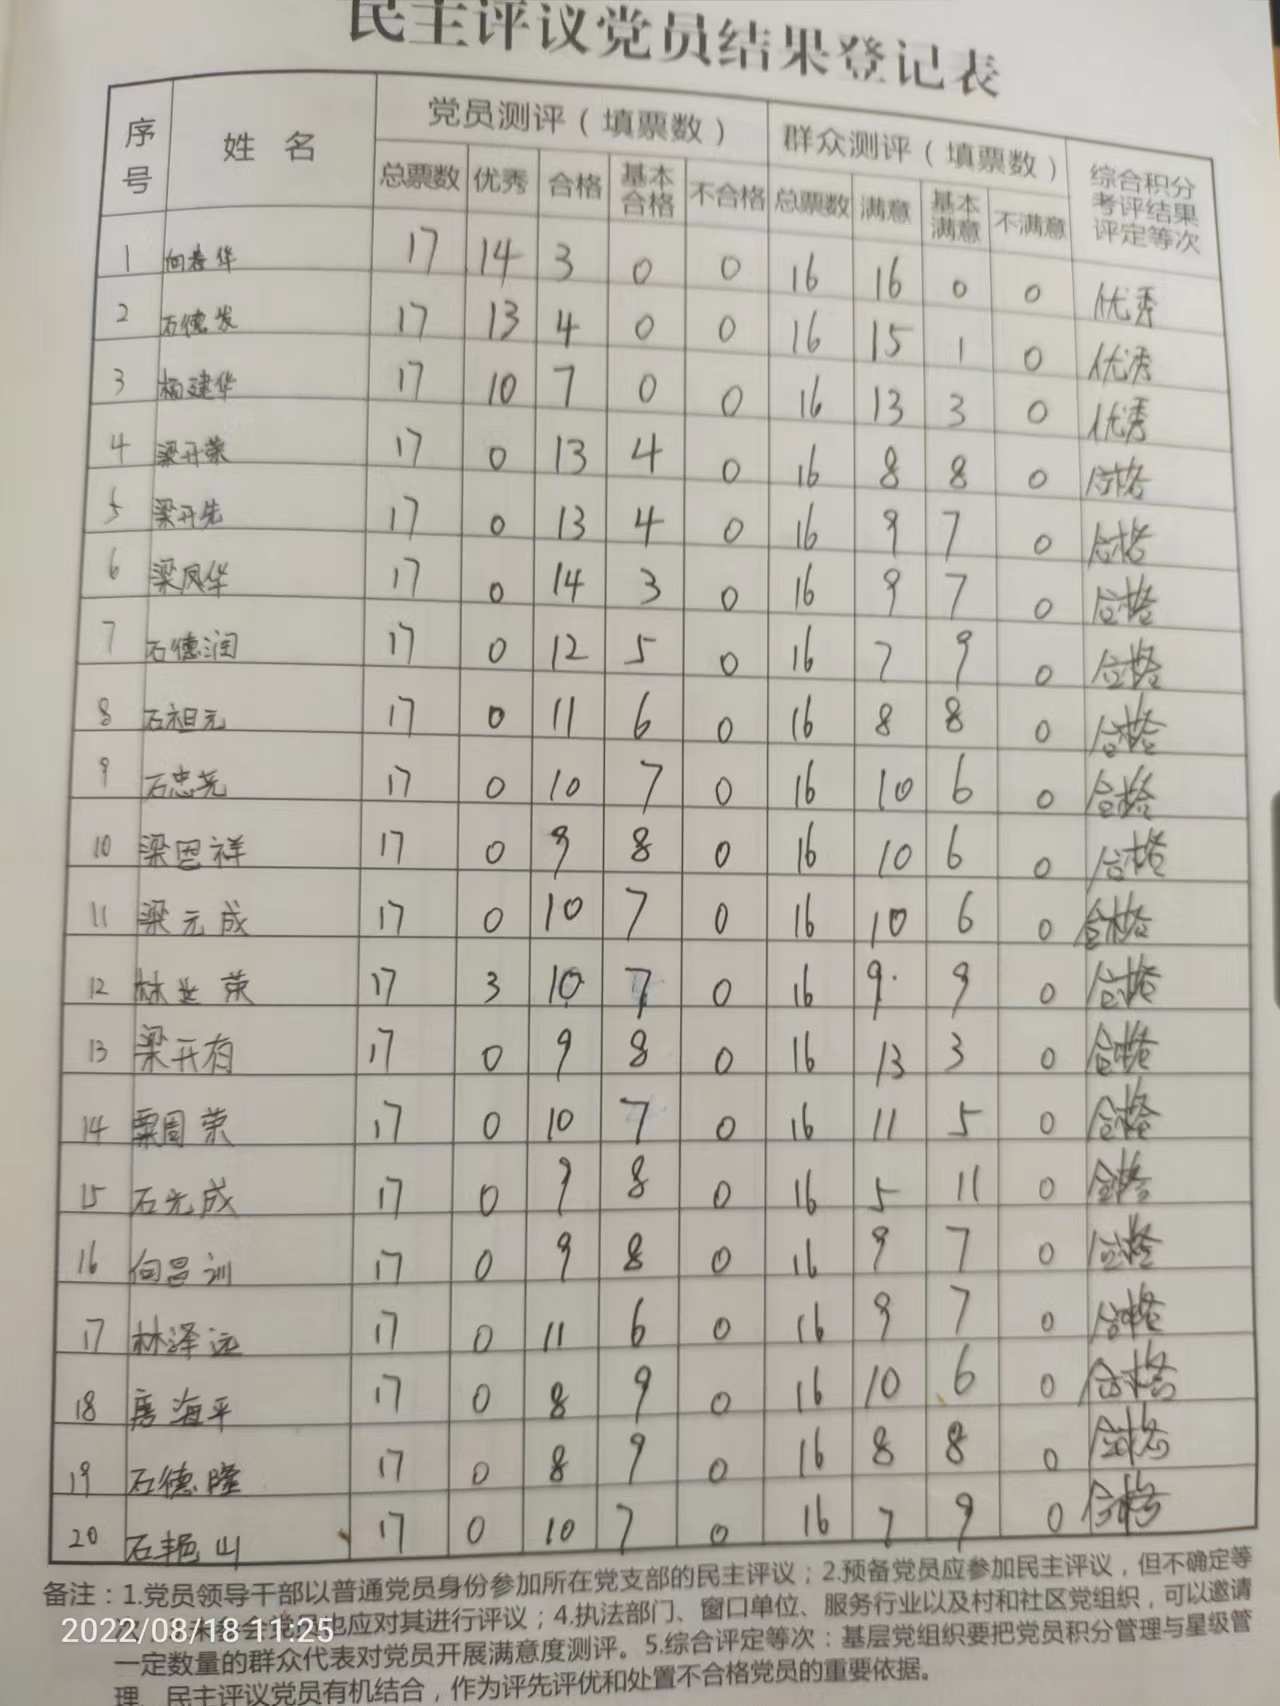 民主评议党员结果登记表
序号 姓名 党员测评（填票数） 群众测评（填票数） 综合积分考评结果评定等次
总票数 优秀 合格 基本合格 不合格 总票数 满意 基本满意 不满意
1 向春华 17 14 3 0 0 16 16 0 0 优秀
2 石德发 17 13 4 0 0 16 15 1 0 优秀
3 杨建华 17 10 7 0 0 16 13 3 0 优秀
4 梁开荣 17 0 13 4 0 16 8 8 0 合格
5 梁开先 17 0 13 4 0 16 9 7 0 合格
6 梁凤华 17 0 14 3 0 16 9 7 0 合格
7 石德润 17 0 12 5 0 16 7 9 0 合格
8 石祖元 17 0 11 6 0 16 8 8 0 合格
9 石忠尧 17 0 10 7 0 16 10 6 0 合格
10 梁恩祥 17 0 9 8 0 16 10 6 0 合格
11 梁元成 17 0 10 7 0 16 10 6 0 合格
12 林业荣 17 3 10 7 0 16 9 9 0 合格
13 梁开有 17 0 9 8 0 16 13 3 0 合格
14 粟周荣 17 0 10 7 0 16 11 5 0 合格
15 石光成 17 0 9 8 0 16 5 11 0 合格
16 向昌训 17 0 9 8 0 16 9 7 0 合格
17 林泽远 17 0 11 6 0 16 9 7 0 合格
18 唐海平 17 0 8 9 0 16 10 6 0 合格
19 石德隆 17 0 8 9 0 16 8 8 0 合格
20 石艳山 17 0 10 7 0 16 7 9 0 合格
备注：1.党员领导干部以普通党员身份参加所在党支部的民主评议；2.预备党员应参加民主评议，但不确定等
也应对其进行评议；4.执法部门、窗口单位、服务行业以及村和社区党组织，可以邀请
2022/08/18 11:25
一定数量的群众代表对党员开展满意度测评。5.综合评定等次：基层党组织要把党员积分管理与星级管
理、民主评议党员有机结合，作为评先评优和处置不合格党员的重要依据。